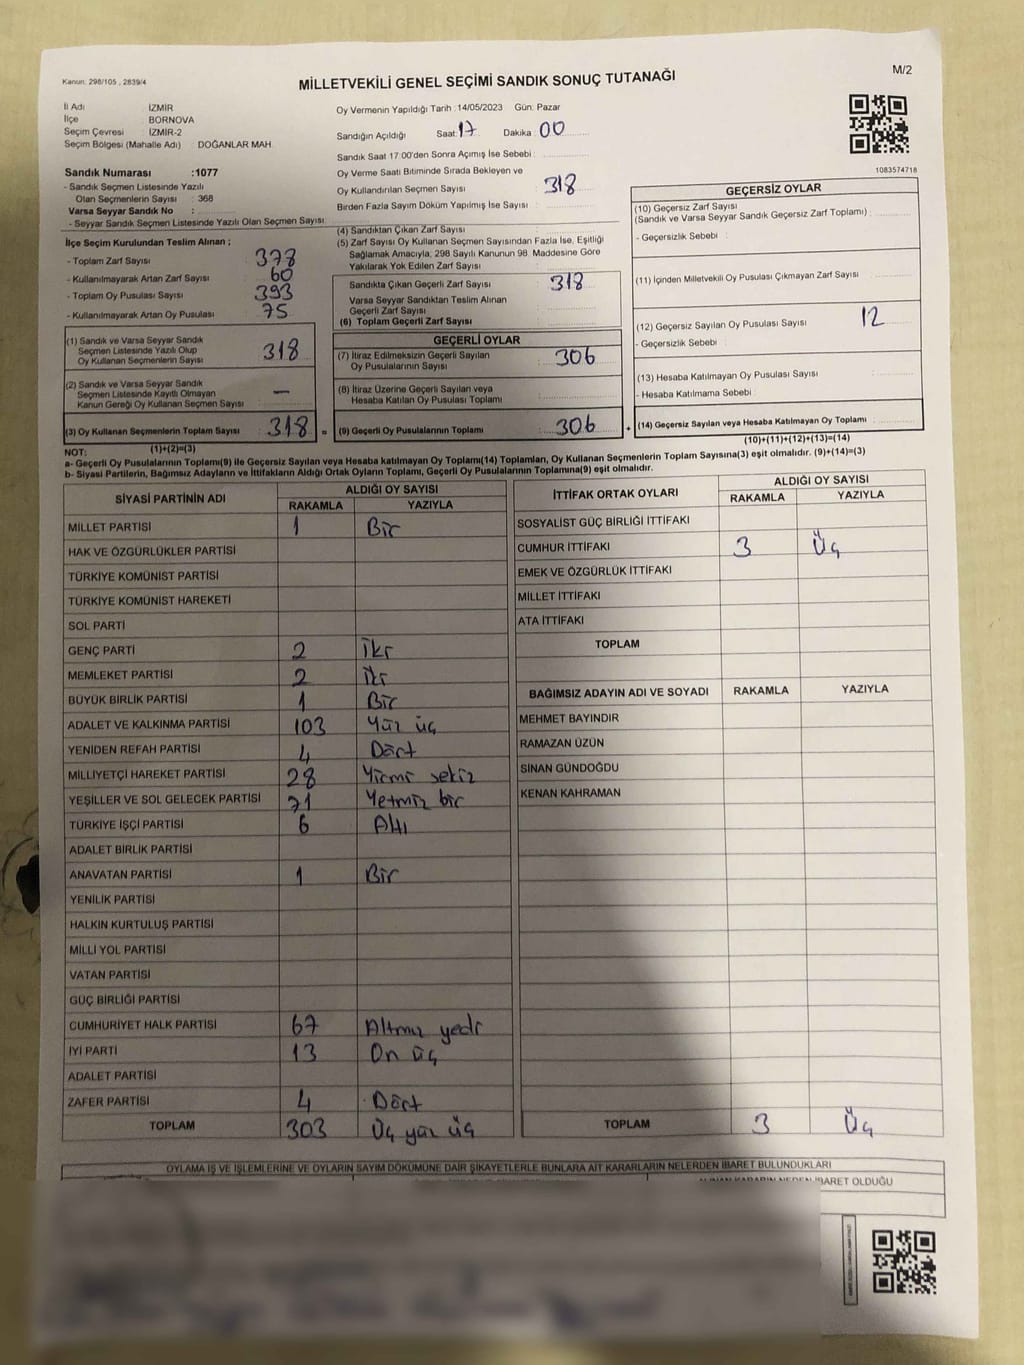 Kanun: 298/105 , 2839/4
MİLLETVEKİLİ GENEL SEÇİMİ SANDIK SONUÇ TUTANAĞI
M/2
İl Adı İZMİR
İlçe BORNOVA
Seçim Çevresi İZMİR-2
Seçim Bölgesi (Mahalle Adı) : DOĞANLAR MAH.
Oy Vermenin Yapıldığı Tarih : 14/05/2023 Gün: Pazar
Sandığın Açıldığı Saat: 17 Dakika : 00
Sandık Saat 17:00'den Sonra Açımış İse Sebebi :
Oy Verme Saati Bitiminde Sırada Bekleyen ve
Oy Kullandırılan Seçmen Sayısı : 318
Birden Fazla Sayım Döküm Yapılmış İse Sayısı :
1083574718
Sandık Numarası :1077
- Sandık Seçmen Listesinde Yazılı
Olan Seçmenlerin Sayısı : 368
Varsa Seyyar Sandık No :
- Seyyar Sandık Seçmen Listesinde Yazılı Olan Seçmen Sayısı:
İlçe Seçim Kurulundan Teslim Alınan ;
- Toplam Zarf Sayısı : 378
- Kullanılmayarak Artan Zarf Sayısı : 60
- Toplam Oy Pusulası Sayısı : 393
- Kullanılmayarak Artan Oy Pusulası : 75
(1) Sandık ve Varsa Seyyar Sandık
Seçmen Listesinde Yazılı Olup
Oy Kullanan Seçmenlerin Sayısı : 318
(2) Sandık ve Varsa Seyyar Sandık
Seçmen Listesinde Kayıtlı Olmayan
Kanun Gereği Oy Kullanan Seçmen Sayısı : —
(3) Oy Kullanan Seçmenlerin Toplam Sayısı : 318 =
(1)+(2)=(3)
(4) Sandıktan Çıkan Zarf Sayısı :
(5) Zarf Sayısı Oy Kullanan Seçmen Sayısından Fazla İse, Eşitliği
Sağlamak Amacıyla, 298 Sayılı Kanunun 98. Maddesine Göre
Yakılarak Yok Edilen Zarf Sayısı :
Sandıkta Çıkan Geçerli Zarf Sayısı : 318
Varsa Seyyar Sandıktan Teslim Alınan
Geçerli Zarf Sayısı :
(6) Toplam Geçerli Zarf Sayısı :
GEÇERLİ OYLAR
(7) İtiraz Edilmeksizin Geçerli Sayılan
Oy Pusulalarının Sayısı : 306
(8) İtiraz Üzerine Geçerli Sayılan veya
Hesaba Katılan Oy Pusulası Toplamı :
(9) Geçerli Oy Pusulalarının Toplamı : 306 +
GEÇERSİZ OYLAR
(10) Geçersiz Zarf Sayısı
(Sandık ve Varsa Seyyar Sandık Geçersiz Zarf Toplamı) :
- Geçersizlik Sebebi :
(11) İçinden Milletvekili Oy Pusulası Çıkmayan Zarf Sayısı :
(12) Geçersiz Sayılan Oy Pusulası Sayısı : 12
- Geçersizlik Sebebi :
(13) Hesaba Katılmayan Oy Pusulası Sayısı :
- Hesaba Katılmama Sebebi :
(14) Geçersiz Sayılan veya Hesaba Katılmayan Oy Toplamı :
(10)+(11)+(12)+(13)=(14)
NOT:
a- Geçerli Oy Pusulalarının Toplamı(9) ile Geçersiz Sayılan veya Hesaba katılmayan Oy Toplamı(14) Toplamları, Oy Kullanan Seçmenlerin Toplam Sayısına(3) eşit olmalıdır. (9)+(14)=(3)
b- Siyasi Partilerin, Bağımsız Adayların ve İttifakların Aldığı Ortak Oyların Toplamı, Geçerli Oy Pusulalarının Toplamına(9) eşit olmalıdır.
SİYASİ PARTİNİN ADI ALDIĞI OY SAYISI
RAKAMLA YAZIYLA
MİLLET PARTİSİ 1 Bir
HAK VE ÖZGÜRLÜKLER PARTİSİ
TÜRKİYE KOMÜNİST PARTİSİ
TÜRKİYE KOMÜNİST HAREKETİ
SOL PARTİ
GENÇ PARTİ 2 İki
MEMLEKET PARTİSİ 2 İki
BÜYÜK BİRLİK PARTİSİ 1 Bir
ADALET VE KALKINMA PARTİSİ 103 Yüz üç
YENİDEN REFAH PARTİSİ 4 Dört
MİLLİYETÇİ HAREKET PARTİSİ 28 Yirmi sekiz
YEŞİLLER VE SOL GELECEK PARTİSİ 71 Yetmiş bir
TÜRKİYE İŞÇİ PARTİSİ 6 Altı
ADALET BİRLİK PARTİSİ
ANAVATAN PARTİSİ 1 Bir
YENİLİK PARTİSİ
HALKIN KURTULUŞ PARTİSİ
MİLLİ YOL PARTİSİ
VATAN PARTİSİ
GÜÇ BİRLİĞİ PARTİSİ
CUMHURİYET HALK PARTİSİ 67 Altmış yedi
İYİ PARTİ 13 On üç
ADALET PARTİSİ
ZAFER PARTİSİ 4 Dört
TOPLAM 303 Üç yüz üç
İTTİFAK ORTAK OYLARI ALDIĞI OY SAYISI
RAKAMLA YAZIYLA
SOSYALİST GÜÇ BİRLİĞİ İTTİFAKI
CUMHUR İTTİFAKI 3 Üç
EMEK VE ÖZGÜRLÜK İTTİFAKI
MİLLET İTTİFAKI
ATA İTTİFAKI
TOPLAM
BAĞIMSIZ ADAYIN ADI VE SOYADI RAKAMLA YAZIYLA
MEHMET BAYINDIR
RAMAZAN ÜZÜN
SİNAN GÜNDOĞDU
KENAN KAHRAMAN
TOPLAM 3 Üç
OYLAMA İŞ VE İŞLEMLERİNE VE OYLARIN SAYIM DÖKÜMÜNE DAİR ŞİKAYETLERLE BUNLARA AİT KARARLARIN NELERDEN İBARET BULUNDUKLARI
ALINAN KARARIN NEDEN İBARET OLDUĞU